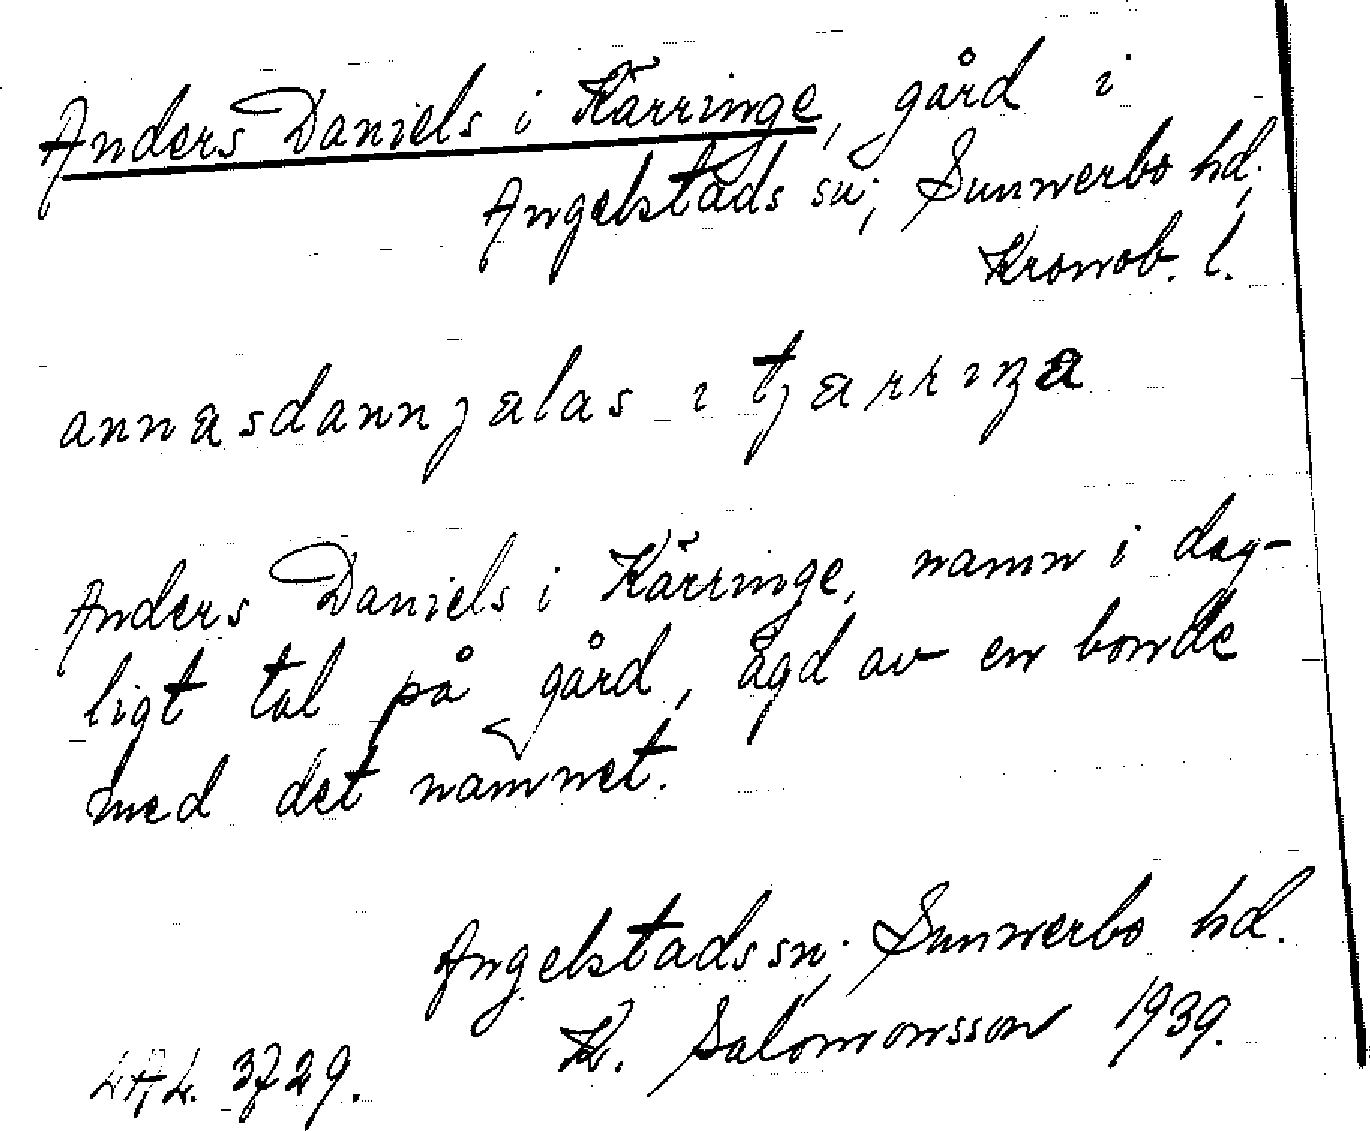 Anders Daniels i Kärringe, gård i
Angelstads sn; Sunnerbo hd;
Kronob. l.
annasdannjalas i tjärriŋa
Anders Daniels i Kärringe, namn i dag-
ligt tal på gård, ägd av en bonde
med det namnet.
Angelstads sn; Sunnerbo hd.
K. Salomonsson 1939.
LAL. 3729.